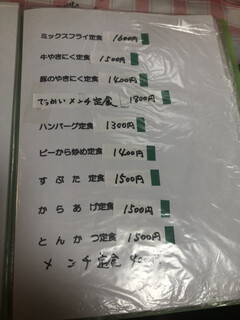 ミックスフライ定食 1600円
牛やきにく定食 1500円
豚のやきにく定食 1400円
でっかいメンチ定食 1800円
ハンバーグ定食 1300円
ピーから炒め定食 1400円
すぶた定食 1500円
からあげ定食 1500円
とんかつ定食 1500円
メンチ定食